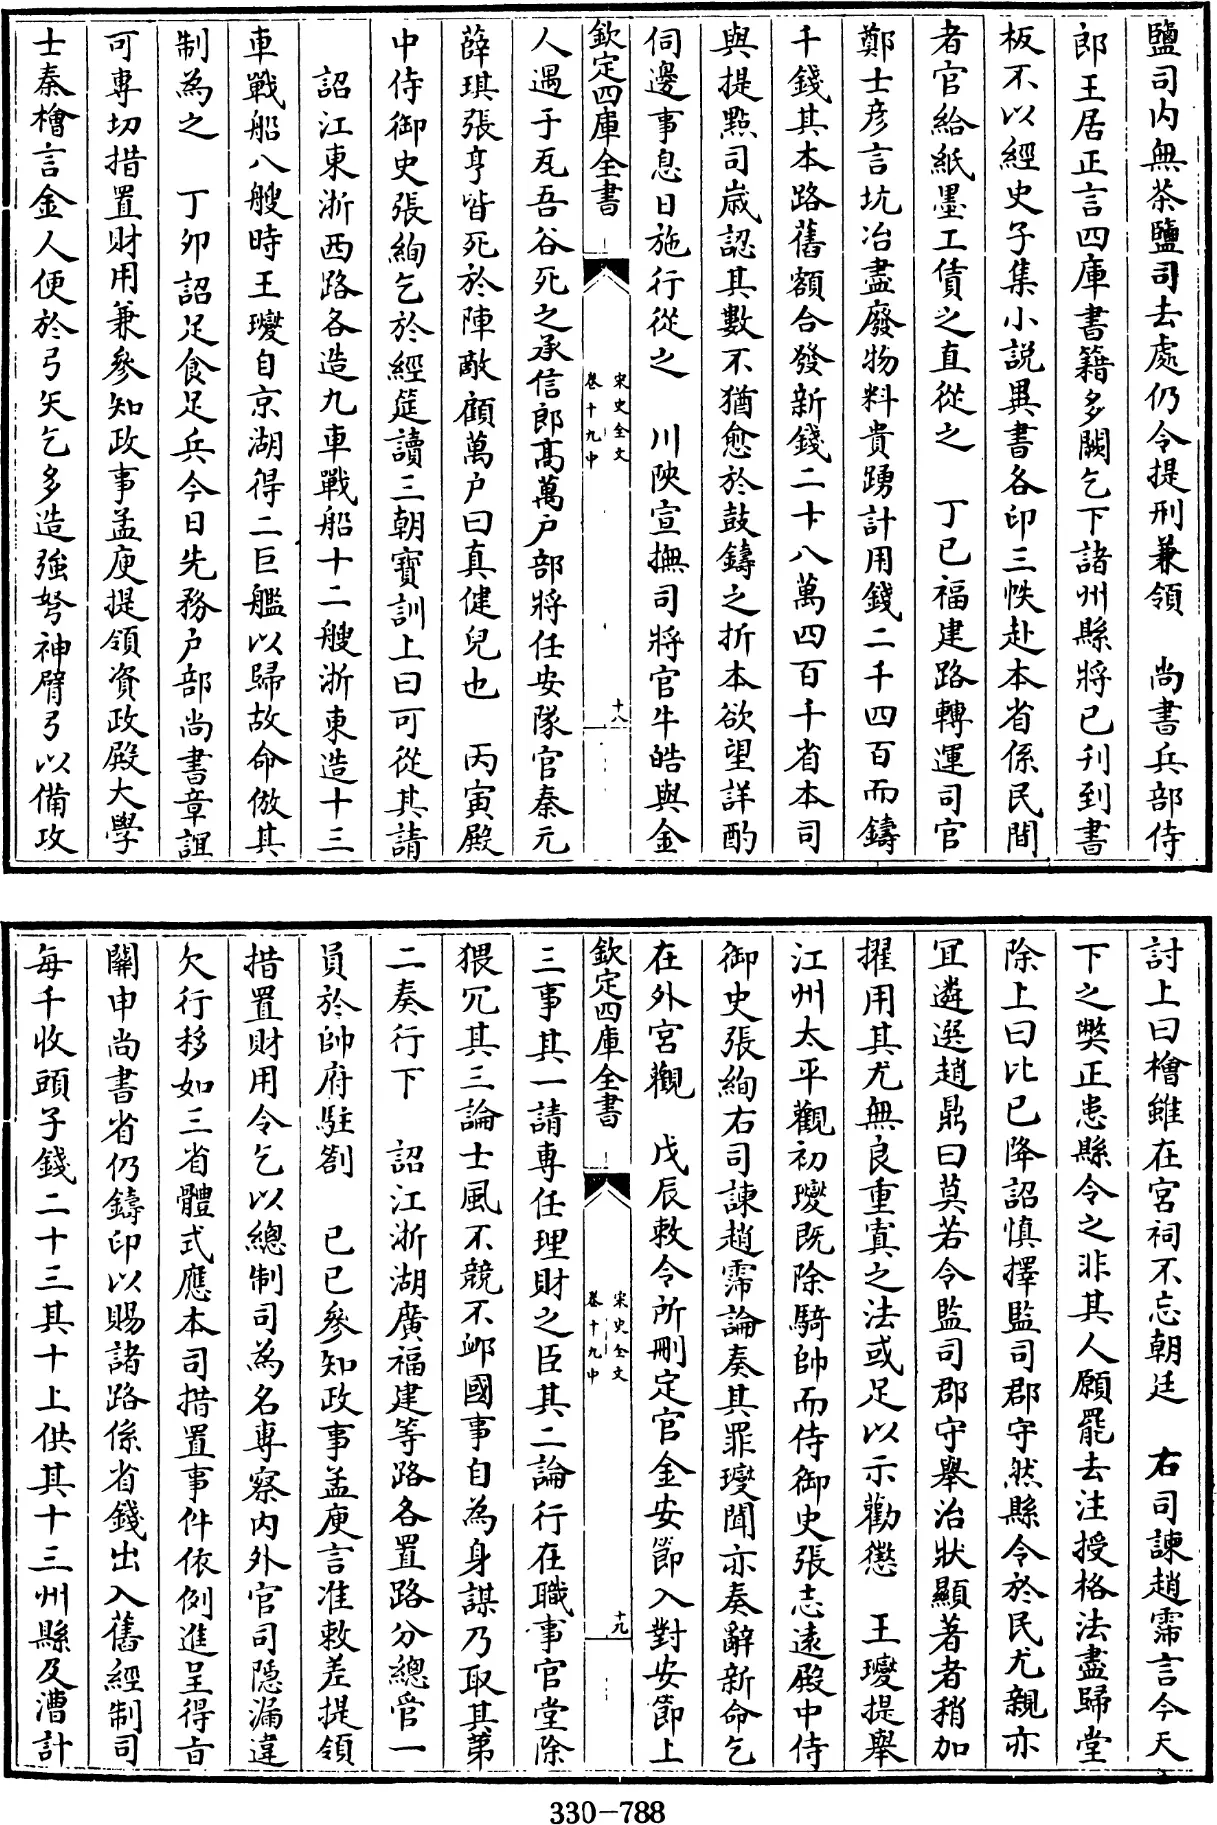 鹽司内無茶鹽司去處仍令提刑兼領　尚書兵部侍
郎王居正言四庫書籍多闕乞下諸州縣將已刋到書
板不以經史子集小説異書各印三帙赴本省係民間
者官給紙墨工賃之直從之　丁巳福建路轉運司官
鄭士彦言坑冶盡廢物料貴踴計用錢二千四百而鑄
千錢其本路舊額合發新錢二十八萬四百千省本司
與提點司歳認其數不猶愈於鼓鑄之折本欲望詳酌
伺邊事息日施行從之　川陜宣撫司將官牛皓與金
欽定四庫全書
宋史全文
卷十九中
十八
人遇于瓦吾谷死之承信郎髙萬户部將任安隊官秦元
薛琪張亨皆死於陣敵顧萬户曰真健兒也　丙寅殿
中侍御史張絢乞於經筵讀三朝寶訓上曰可從其請
詔江東浙西路各造九車戰船十二艘浙東造十三
車戰船八艘時王𤫉自京湖得二巨艦以歸故命倣其
制為之　丁卯詔足食足兵今日先務户部尚書章誼
可專切措置財用兼參知政事孟庾提領資政殿大學
士秦檜言金人便於弓矢乞多造強弩神臂弓以備攻
討上曰檜雖在宮祠不忘朝廷　右司諫趙霈言今天
下之獘正患縣令之非其人願罷去注授格法盡歸堂
除上曰比已降詔慎擇監司郡守然縣令於民尤親亦
宜遴選趙鼎曰莫若令監司郡守舉治狀顯著者稍加
擢用其尤無良重寘之法或足以示勸懲　王𤫉提舉
江州太平觀初𤫉既除騎帥而侍御史張志逺殿中侍
御史張絢右司諫趙霈論奏其罪𤫉聞亦奏辭新命乞
在外宮觀　戊辰敕令所刪定官金安節入對安節上
欽定四庫全書
宋史全文
卷十九中
十九
三事其一請專任理財之臣其二論行在職事官堂除
猥冗其三論士風不競不䘏國事自為身謀乃取其第
二奏行下　詔江浙湖廣福建等路各置路分總管一
員於帥府駐劄　己巳參知政事孟庾言准敕差提領
措置財用令乞以總制司為名專察内外官司隱漏違
欠行移如三省體式應本司措置事件依例進呈得㫖
闗申尚書省仍鑄印以賜諸路係省錢出入舊經制司
每千收頭子錢二十三其十上供其十三州縣及漕計
330-788